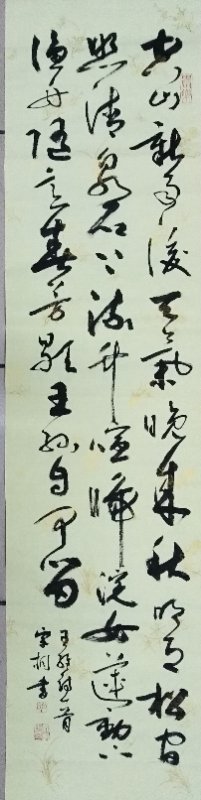 空山新雨後天氣晚來秋明月松間
照清泉石上流竹喧歸浣女蓮動下
漁舟隨意春芳歇王孫自可留
王維詩一首
桐書